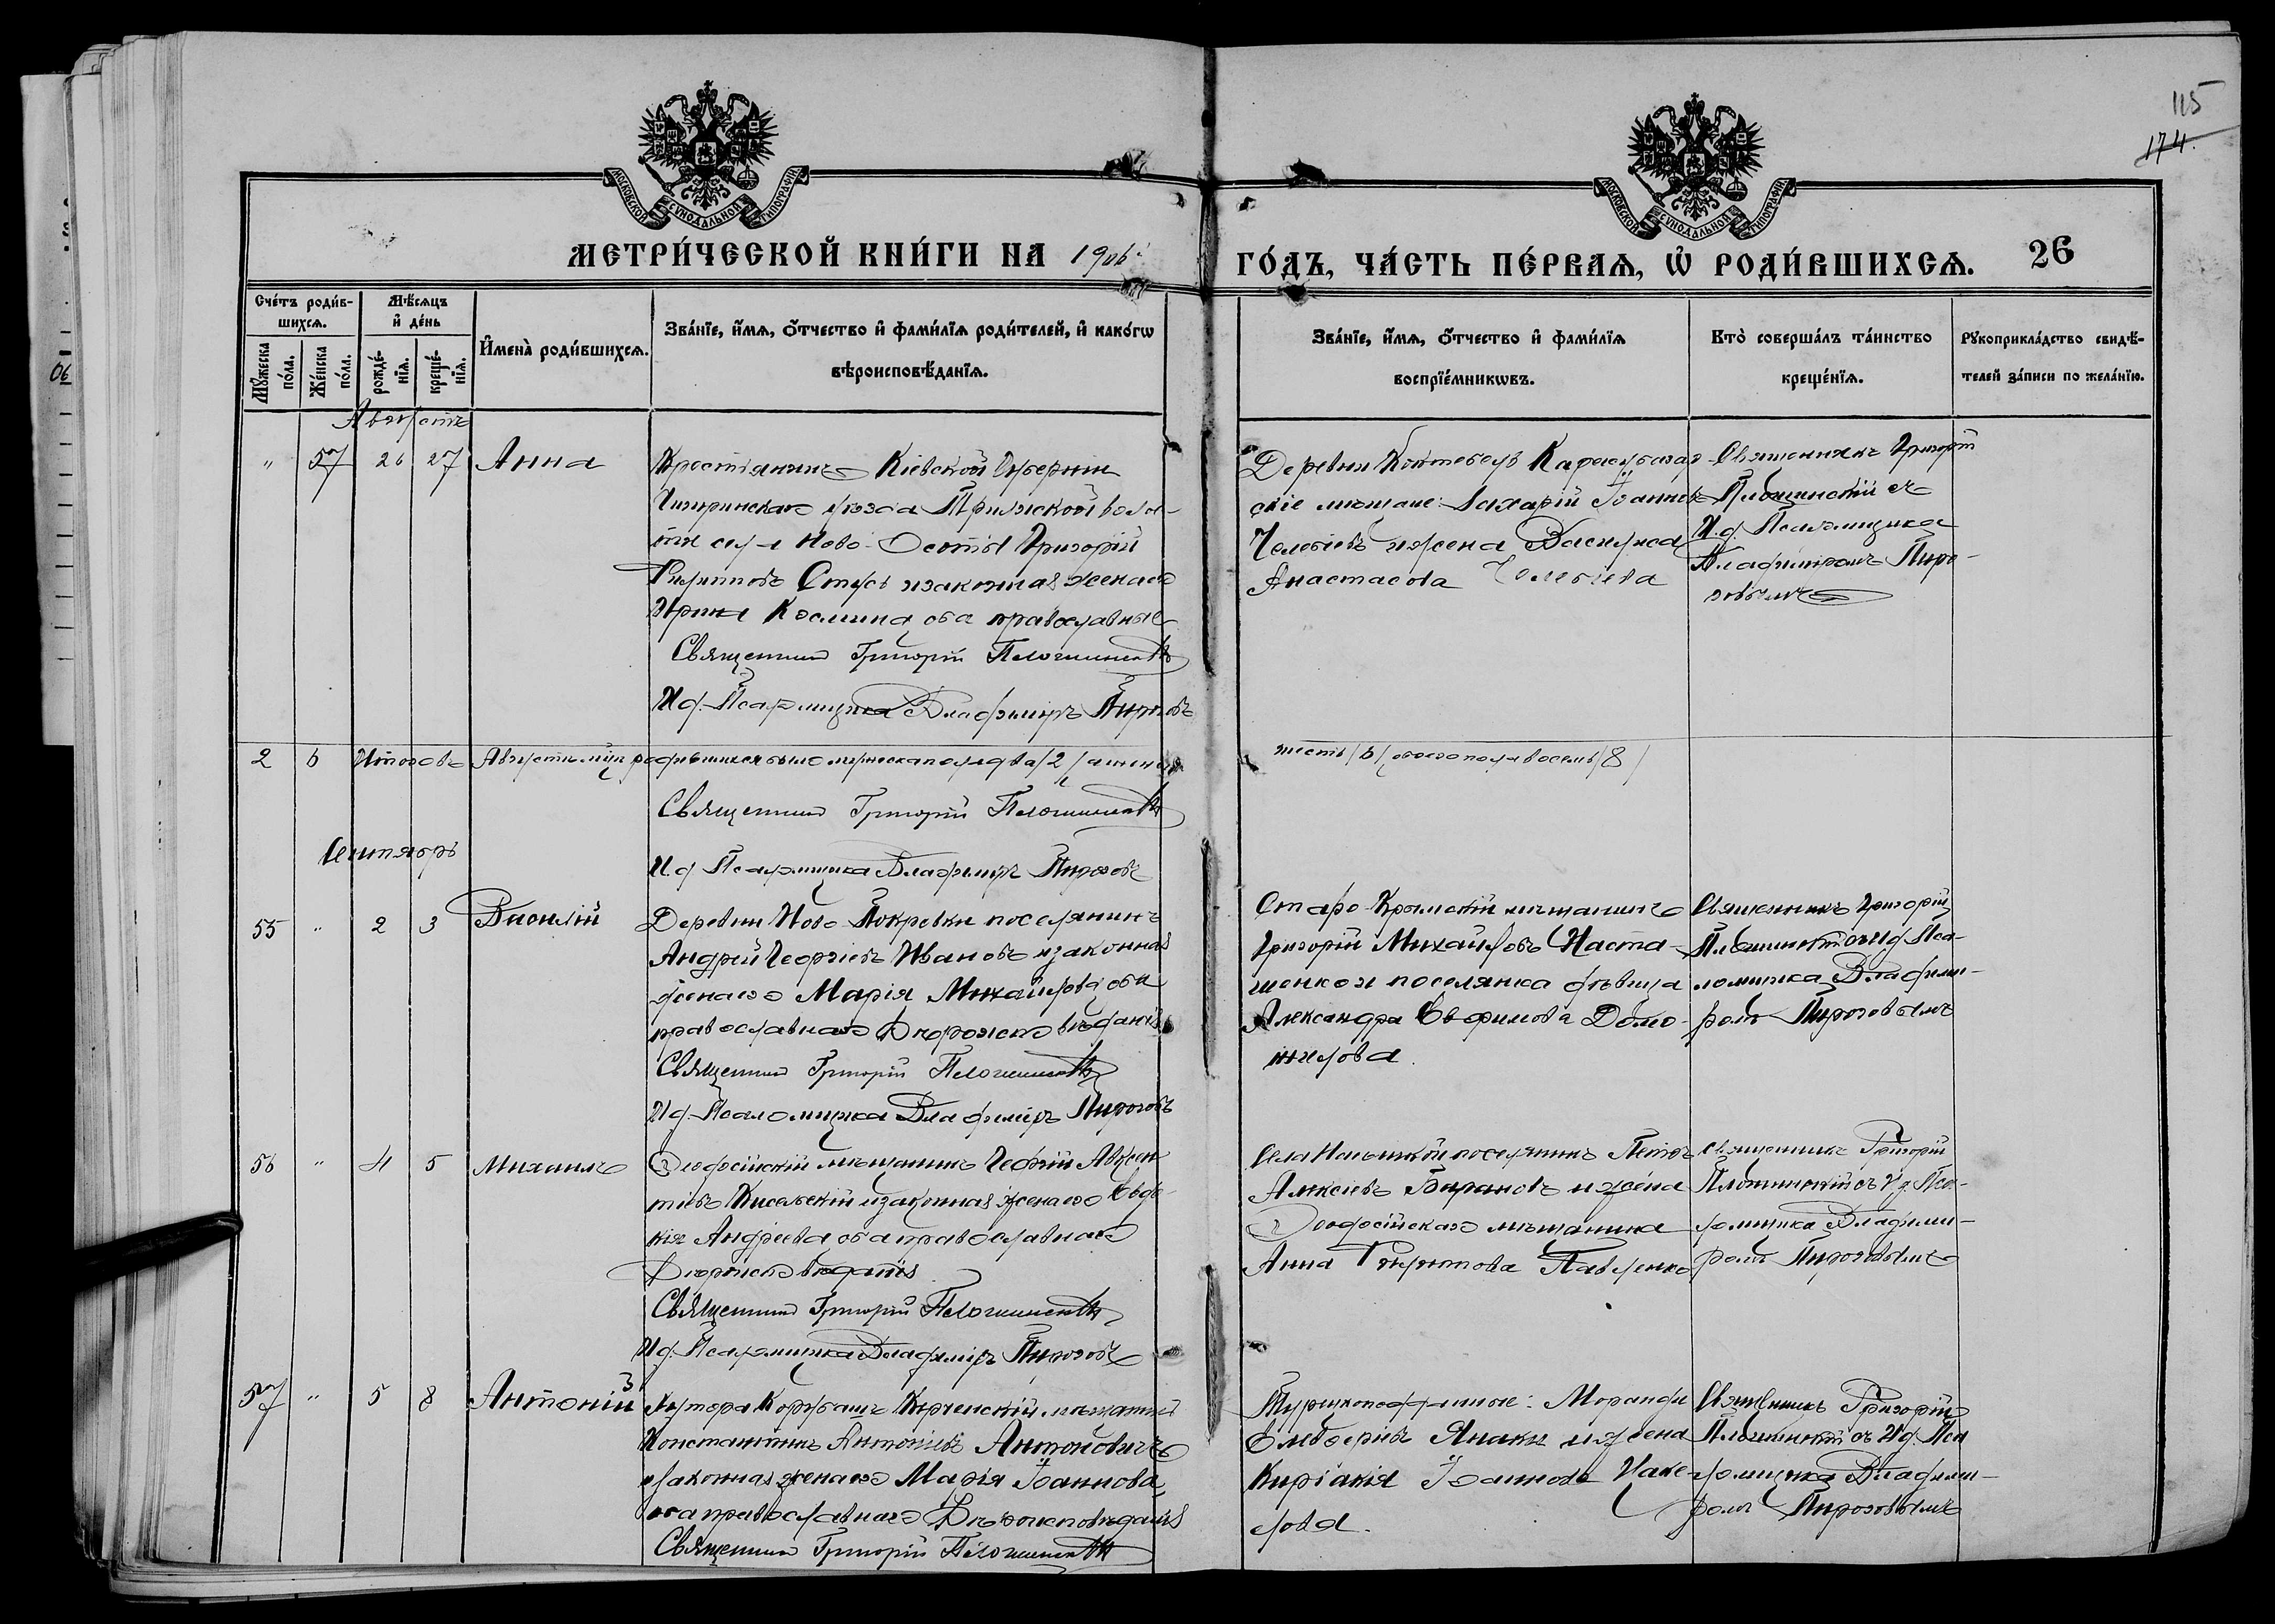 115
174.
МОСКОВСКОЙ СѴНОДАЛЬНОЙ ТИПОГРАФІИ
МОСКОВСКОЙ СѴНОДАЛЬНОЙ ТИПОГРАФІИ
МЕТРИ́ЧЕСКОЙ КНИ́ГИ НА 1906
ГО́ДЪ, ЧА́СТЬ ПЕ́РВАЯ, Ѡ РОДИ́ВШИХСЯ. 26
Сче́тъ роди́в-
шихся.
Мѣ́сяцъ
и де́нь
Мꙋ́жеска
по́ла.
Же́нска
по́ла.
рожде́-
нїя.
креще́-
нїя.
И҆мена̀ роди́вшихся.
Зва́нїе, и҆́мя, ѻ҆́тчество и҆ фами́лїя роди́телей, и҆ како́гѡ
вѣроисповѣ́данїя.
Зва́нїе, и҆́мя, ѻ҆́тчество и҆ фами́лїя
воспрїе́мникѡвъ.
Кто̀ соверша́лъ та́инство
креще́нїя.
Рꙋкоприкла́дство свидѣ́-
телей за́писи по жела́нїю.
Августъ
" 57 26 27 Анна
Крестьянинъ Кіевской Губерніи
Чигиринскаго уѣзда волос-
ти села Ново-Осоты Григорій
Филиповъ Стусь и законная жена его
Ирина Козмина, оба православные
Священникъ Григорій
И.д. Псаломщика Владиміръ Пироговъ
Деревни Коктебель Карасубазар-
скіе мѣщане: Захарій Іоанновъ
Челебіевъ и жена Василиса
Анастасова Челебіева
Священникъ Григорій
съ
И.д. Псаломщика
Владиміромъ Пиро-
говымъ
2 6 Итого въ Августѣ м-цѣ родившихся было мужеска пола два /2/ а женска
шесть /6/ обоего пола восемь /8/
Священникъ Григорій
И.д. Псаломщика Владиміръ Пироговъ
Сентябрь
55 " 2 3
Деревни Ново-Покровки поселянинъ
Андрей Георгіевъ Ивановъ и законная
жена его Марія Михайлова, оба
православнаго вѣроисповѣданія
Священникъ Григорій
И.д. Псаломщика Владиміръ Пироговъ
Старо-Крымскій мѣщанинъ
Григорій Михайловъ Наста-
шенко и поселянка дѣвица
Александра Евфимова
Священникъ Григорій
съ И.д. Пса-
ломщика Владими-
ромъ Пироговымъ
56 " 4 5 Михаилъ
Ѳеодосійскій мѣщанинъ Георгій Авксен-
тіевъ и законная жена его Евдо-
кія Андреева, оба православнаго
вѣроисповѣданія
Священникъ Григорій
И.д. Псаломщика Владиміръ Пироговъ
Села поселянинъ Петръ
Алексіевъ Барановъ и жена
Ѳеодосійскаго мѣщанина
Анна Филиппова Павленко
Священникъ Григорій
съ И.д. Пса-
ломщика Владими-
ромъ Пироговымъ
57 " 5 8 Антоній
Хутора Корубашъ Керченскій мѣщанинъ
Константинъ Антоніевъ Антоновичъ
и законная жена его Марія Іоаннова,
оба православнаго Вѣроисповѣданія
Священникъ Григорій
Турецкоподданные:
Янаки и жена
Киріакія Іоаннова
Священникъ Григорій
съ И.д. Пса-
ломщика Владими-
ромъ Пироговымъ